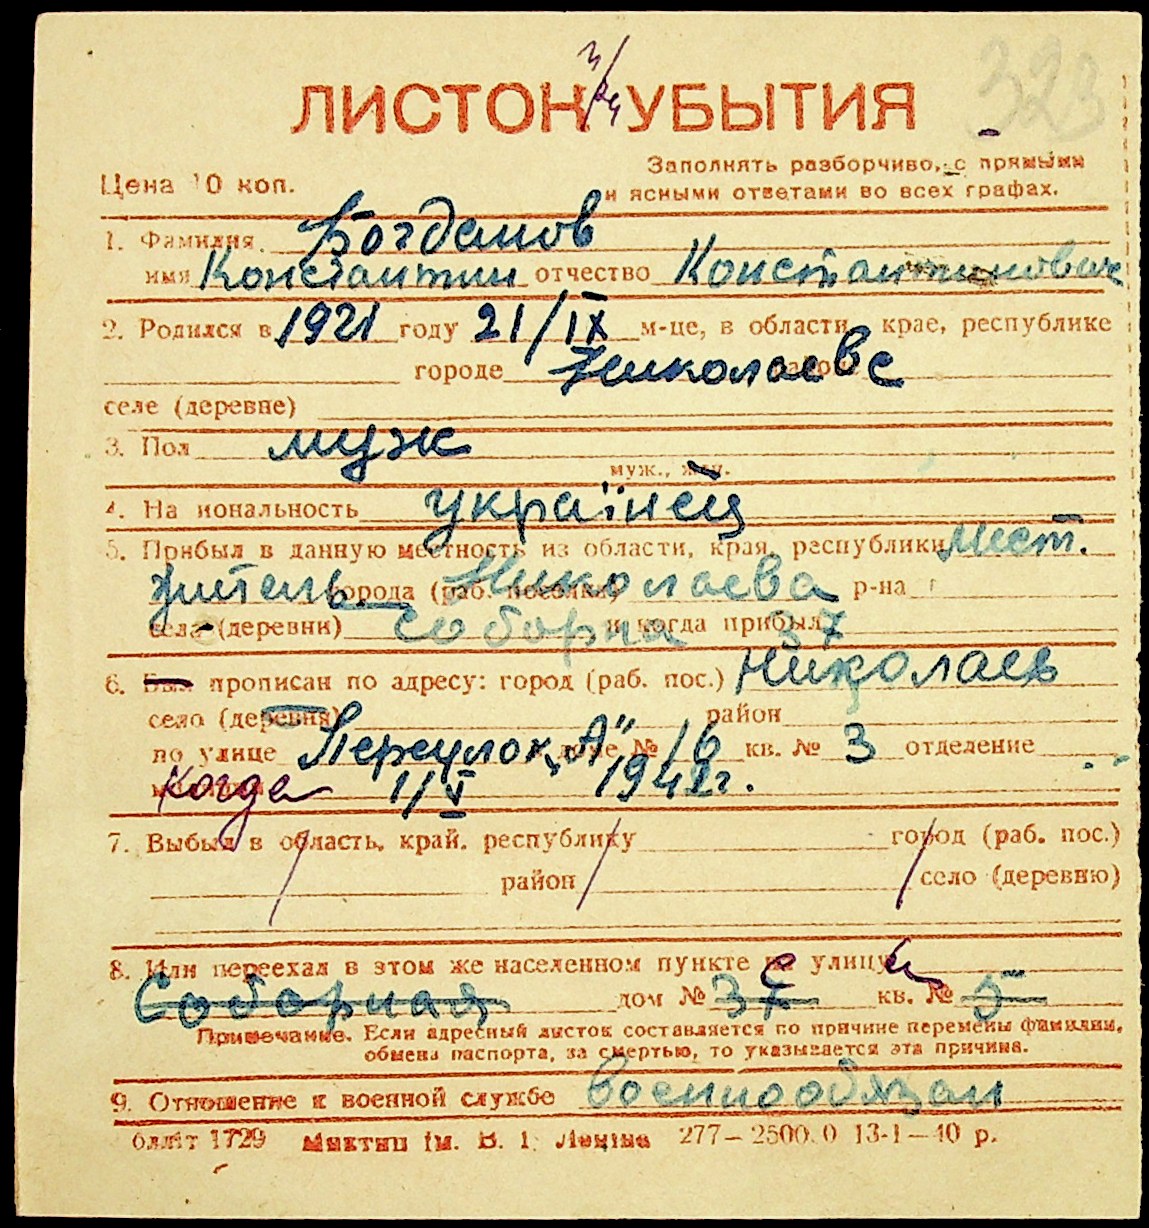 323
ЛИСТОК УБЫТИЯ
Цена 10 коп.
Заполнять разборчиво, с прямыми
и ясными ответами во всех графах.
1. Фамилия Богданов
имя Константин отчество Константинович
2. Родился в 1921 году 21/IX м-це, в области, крае, республике
городе Николаеве
селе (деревне)
3. Пол муж
муж., жен.
4. На иональность украïнец
5. Прибыл в данную местность из области, края, республики мест.
житель города (раб. поселка) Николаева р-на
села (деревни) Соборна и когда прибыл 37
6. Был прописан по адресу: город (раб. пос.) Николаев
село (деревня) район
по улице Переулок „А" доме № 16 кв. № 3 отделение
милиции когда 1/V 1942г.
7. Выбыл в область, край, республику город (раб. пос.)
район село (деревню)
8. Или переехал в этом же населенном пункте на улицу
Соборная дом № 37 кв. № 5
Примечание. Если адресный листок составляется по причине перемены фамилии,
обмена паспорта, за смертью, то указывается эта причина.
9. Отношение к военной службе военнообязан
бллiт 1729 Миктип iм. В. I. Ленiна 277—2500.0 13-I—40 р.